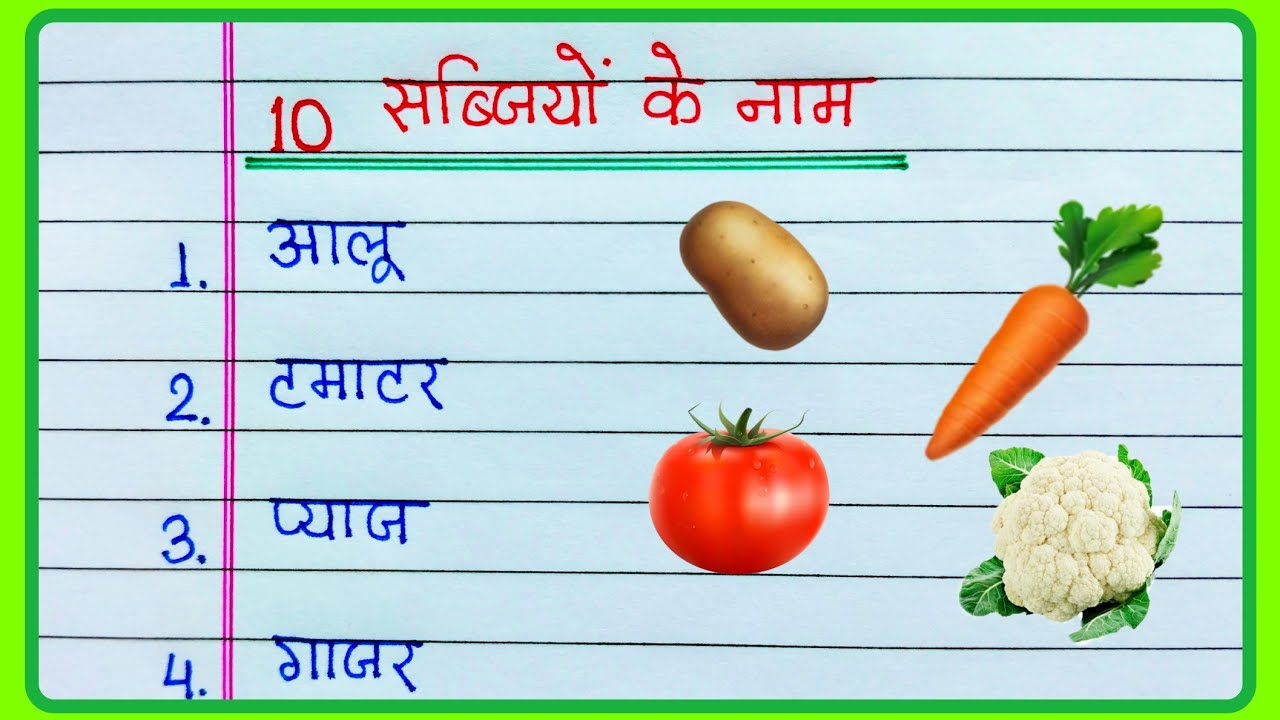 10 सब्जियों के नाम
1. आलू
2. टमाटर
3. प्याज
4. गाजर